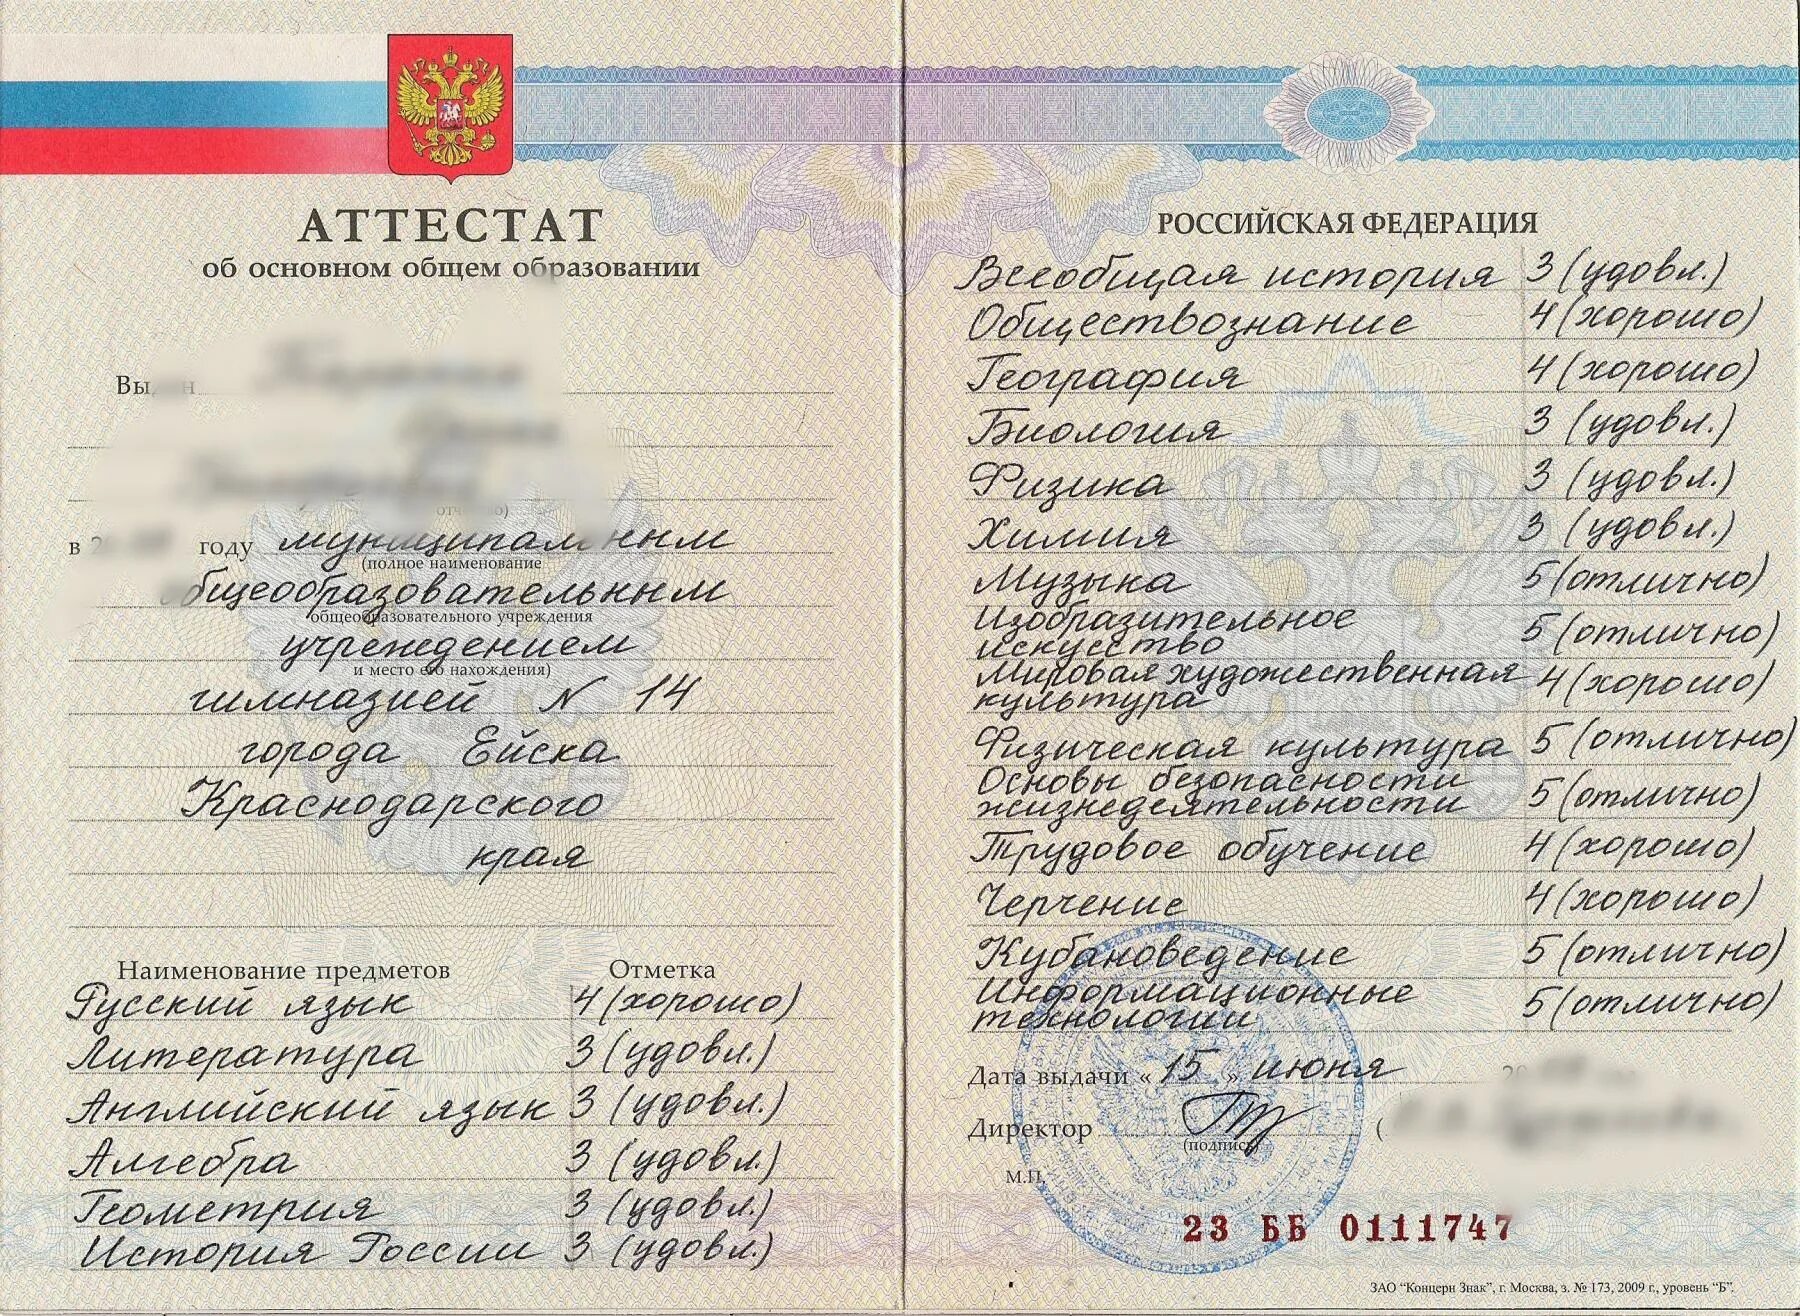 АТТЕСТАТ
об основном общем образовании
Выдан
отчество)
в 2 году муниципальным
(полное наименование
общеобразовательным
общеобразовательного учреждения
учреждением
и место его нахождения)
гимназией N 14
города Ейска
Краснодарского
края
Наименование предметов Отметка
Русский язык 4 (хорошо)
Литература 3 (удовл.)
Английский язык 3 (удовл.)
Алгебра 3 (удовл.)
Геометрия 3 (удовл.)
История России 3 (удовл.)
РОССИЙСКАЯ ФЕДЕРАЦИЯ
Всеобщая история 3 (удовл.)
Обществознание 4 (хорошо)
География 4 (хорошо)
Биология 3 (удовл.)
Физика 3 (удовл.)
Химия 3 (удовл.)
Музыка 5 (отлично)
Изобразительное
искусство 5 (отлично)
Мировая художественная
культура 4 (хорошо)
Физическая культура 5 (отлично)
Основы безопасности
жизнедеятельности 5 (отлично)
Трудовое обучение 4 (хорошо)
Черчение 4 (хорошо)
Кубановедение 5 (отлично)
Информационные
технологии 5 (отлично)
Дата выдачи « 15 » июня 20
Директор (
(подпись)
М.П.
23 ББ 0111747
ЗАО "Концерн Знак", г. Москва, з. № 173, 2009 г., уровень "Б".